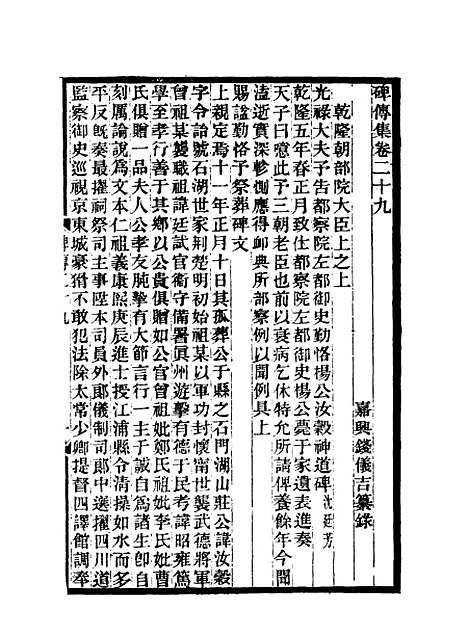 碑傳集卷二十九
嘉興錢儀吉纂錄
乾隆朝部院大臣上之上
光祿大夫予告都察院左都御史勤恪楊公汝穀神道碑 沈廷芳
乾隆五年春正月致仕都察院左都御史楊公薨于家遺表進奏
天子曰噫此予三朝老臣也前以衰病乞休特允所請俾養餘年今聞
溘逝實深軫惻應得卹典所部察例以聞例具上
賜諡勤恪予祭葬碑文
上親定格十一年正月十日其孤葬公于縣之石門湖山莊公諱汝穀
字令詒號石湖世家荆楚明初始祖某以軍功封懷甯世襲武德將軍
曾祖某襲職祖諱廷試官衞守備署眞州遊擊有德于民考諱昭雍篤
學至孝行善于其鄉以公貴俱贈如公官曾祖妣鄭氏祖妣李氏妣曹
氏俱贈一品夫人公孝友肫摯有大節言行一主于誠自爲諸生卽自
刻厲論說爲文本仁祖義康熙庚辰進士授江浦縣令清操如水而多
平反旣奏最擢祠祭司主事陞本司員外郎儀制司郎中選擢四川道
監察御史巡視京東城豪猾不敢犯法除太常少卿提督四譯館調奉